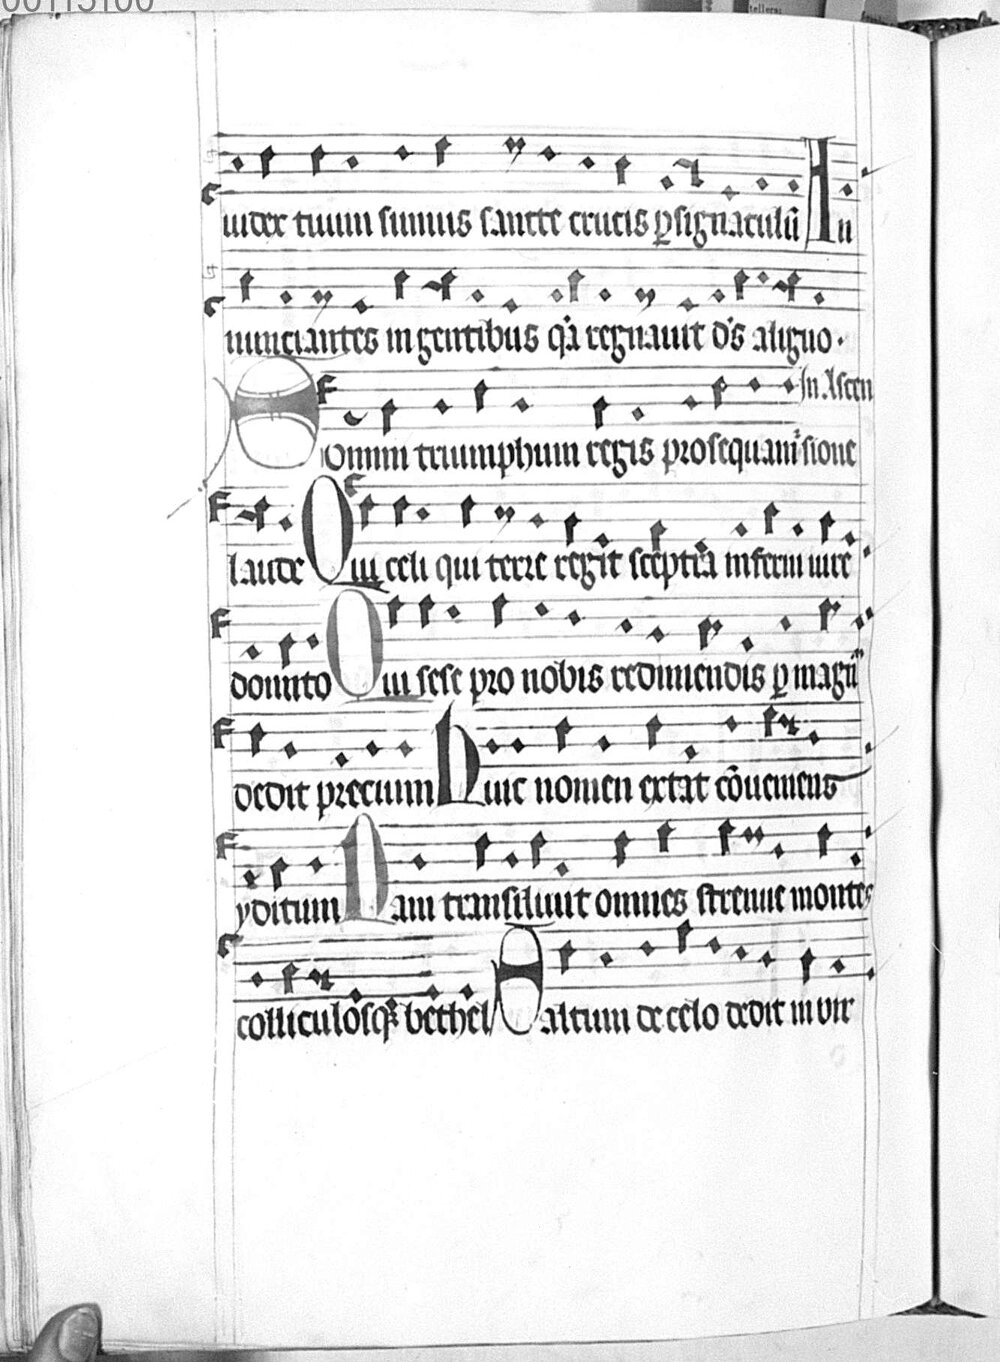 00115100
tellera:
iudex tuum sumus sancte crucis ꝑ signaculũ An
nunciantes in gentibus qᷓa regnauit dñs a ligno.
In Ascen
Omnem triumphum regis prosequam᷑ sione
laude Qui celi qui terre regit sceptra inferni iure
domito Qui sese pro nobis redimendis ꝑ magnũ
dedit precium Huic nomen extat cõueniens
yditum Nam transiliuit omnes strenue montes
colliculosqꝫ bethel Saltum de celo dedit in vir